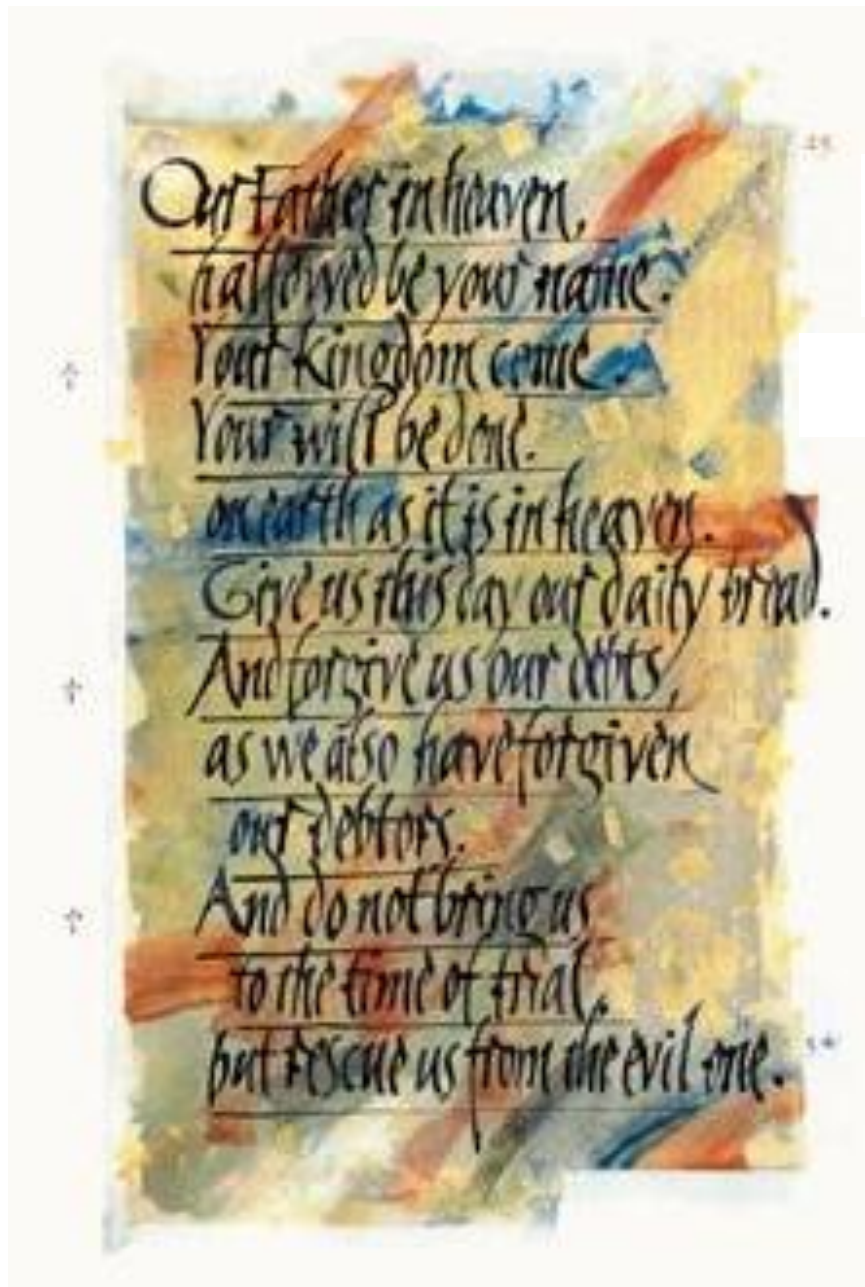 Our Father in heaven,
hallowed be your name.
Your kingdom come.
Your will be done.
on earth as it is in heaven.
Give us this day our daily bread.
And forgive us our debts,
as we also have forgiven
our debtors.
And do not bring us
to the time of trial,
but rescue us from the evil one.